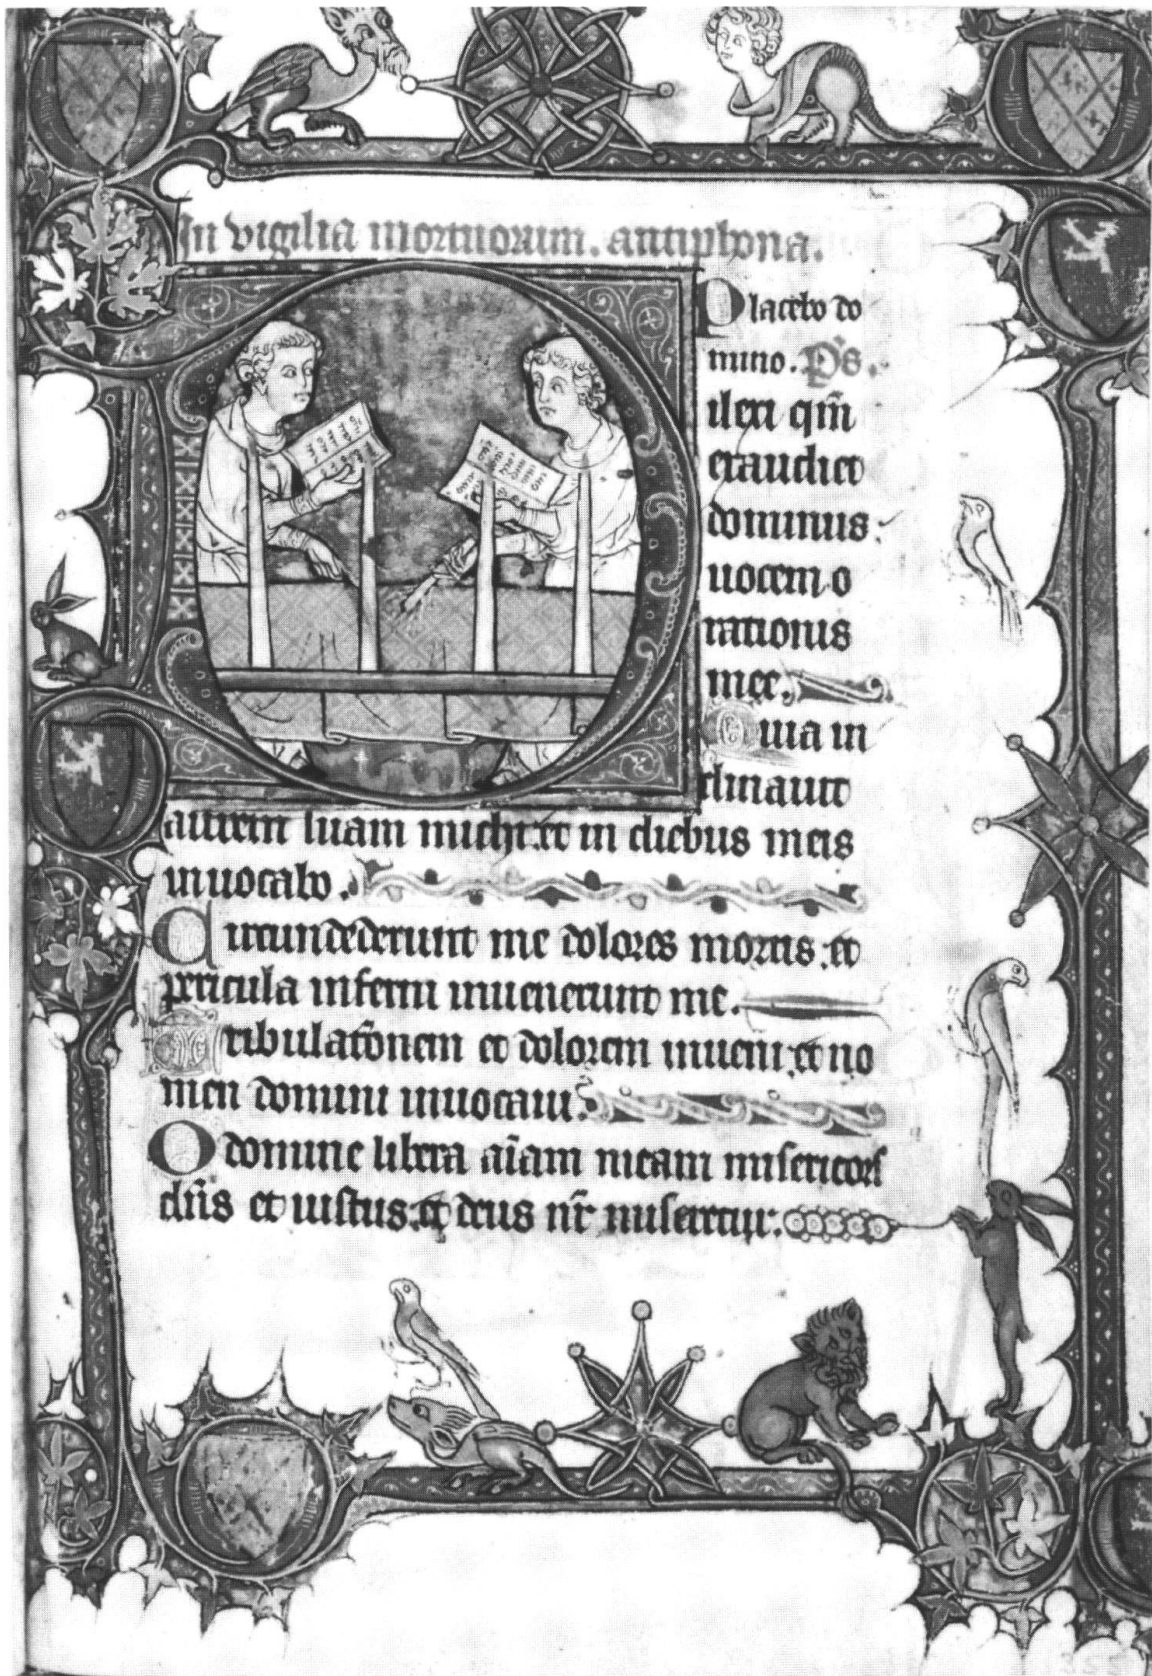 In vigilia mortuorum. antiphona.
Placebo do
mino. Ps.
ilexi qm̄
exaudiet
dominus
uocem o
rationis
mee.
Quia in
clinauit
aurem suam michi: et in diebus meis
inuocabo.
Circundederunt me dolores mortis: et
pericula inferni inuenerunt me.
Tribulatōnem et dolorem inueni: et no
men domini inuocaui.
O domine libera aīam meam misericors
dn̄s et iustus: et deus nr̄ miseretur.